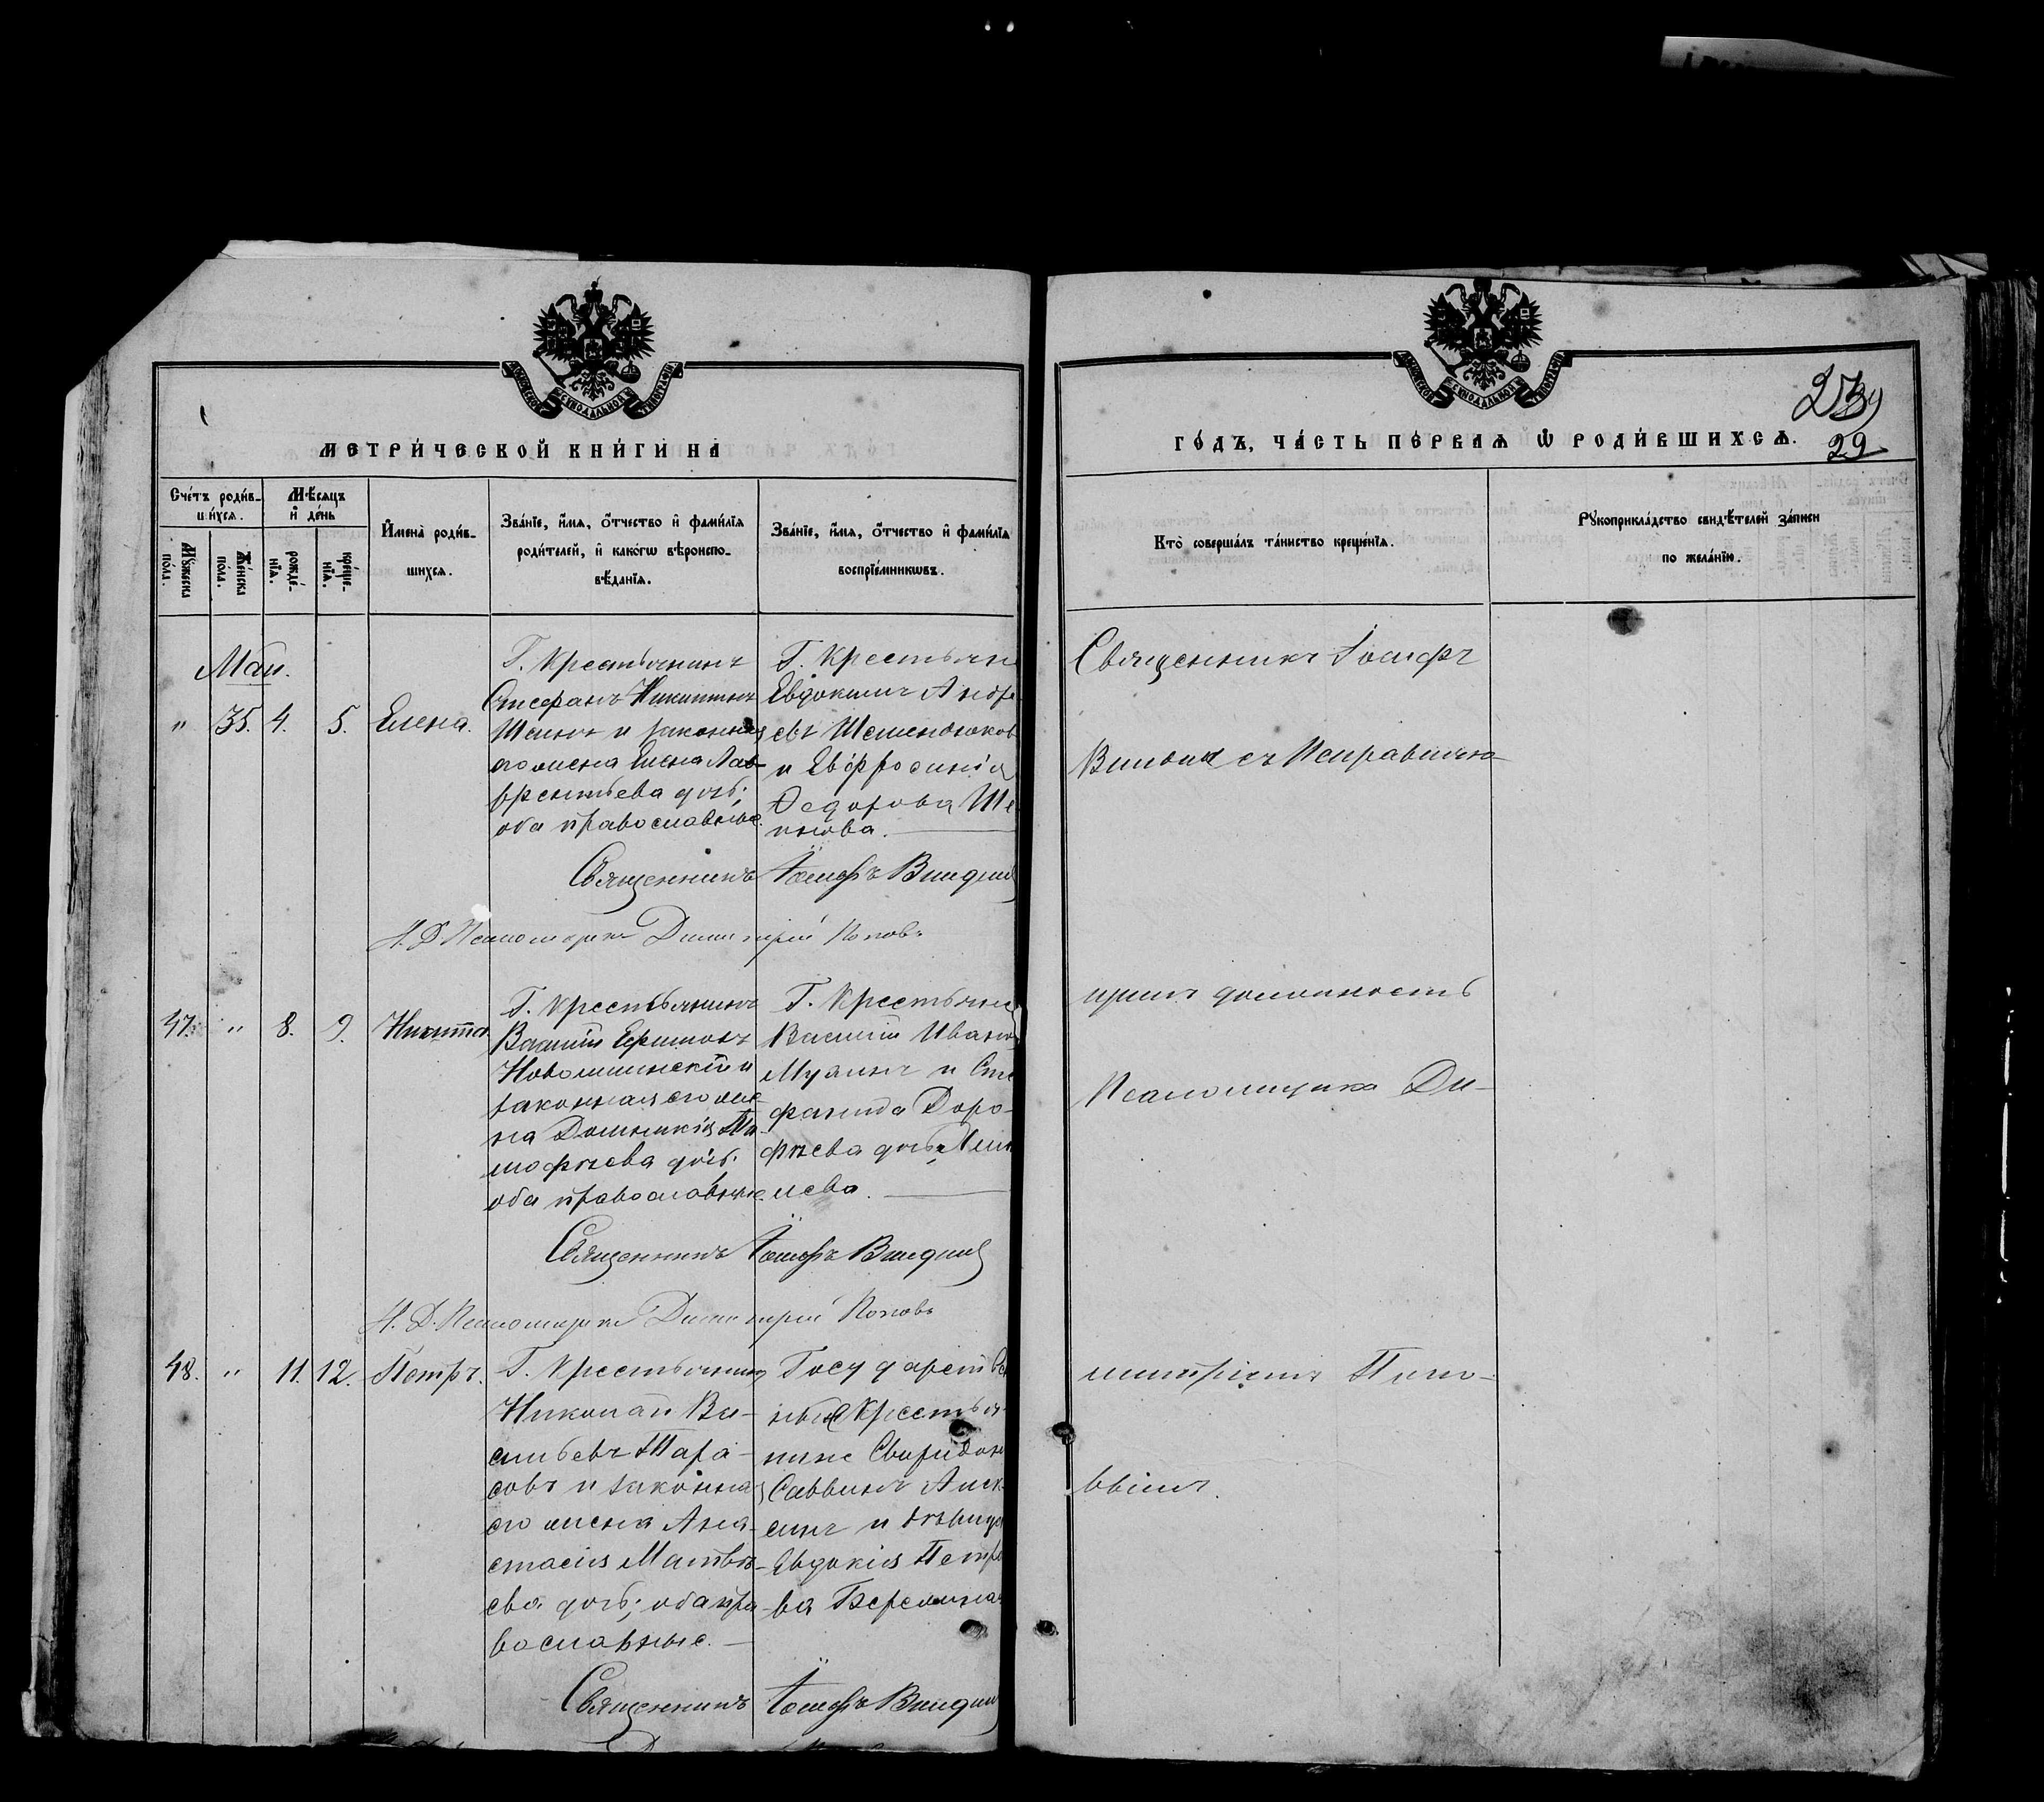 МЕТРИ́ЧЕСКОЙ КНИ́ГИ НА
Сче́тъ роди́в-
шихся.
Мѣ́сяцъ
и҆ де́нь
Мꙋ́жеска
по́ла.
Же́нска
по́ла.
рожде́-
нїя.
креще́-
нїя.
И҆мена̀ роди́в-
шихся.
Зва́нїе, и҆́мя, ѻ҆́тчество и҆ фами́лїя
роди́телей, и҆ како́гѡ вѣроиспо-
вѣ́данїя.
Зва́нїе, и҆́мя, ѻ҆́тчество и҆ фами́лїя
воспрїе́мникѡвъ.
Май.
" 35. 4. 5. Елена.
Г. Крестьянинъ
Стефанъ Никитинъ
и законная
его жена Елена Лав-
рентьева дочь;
оба православные.
Г. Крестьяни
Евдокимъ Андре
евъ
и Евфросинія
Ѳедорова
Священникъ Іосифъ
И. Д. Псаломщика Димитрій Поповъ
47. " 8. 9. Никита
Г. Крестьянинъ
Василій Ефимовъ
и
законная его же-
на Домникія Ти
мофѣева дочь;
оба православные
Г. Крестьяни
Василій Ивано
и Сте
фанида Доро-
фѣева дочь
Священникъ Іосифъ
И. Д. Псаломщика Димитрій Поповъ
48. " 11. 12. Петръ.
Г. Крестьянинъ
Николай Ва-
сильевъ Тара-
совъ и законная
его жена Ана-
стасія Матвѣ-
ева дочь; оба пра
вославные.
Государствен
ные Крестья-
нине Свиридонъ
Саввинъ Алек
синъ и дѣвица
Евдокія Петро
ва
Священникъ Іосифъ
ГО́ДЪ, ЧА́СТЬ ПЕ́РВАЯ Ѡ҆ РОДИ́ВШИХСЯ.
29
Кто̀ соверша́лъ та́инство креще́нїя.
Рꙋкоприкла́дство свидѣ́телей за́писи
по жела́нїю.
Священникъ Іосифъ
съ Исправляю-
щимъ должность
Псаломщика Ди-
митріемъ Попо-
вымъ.